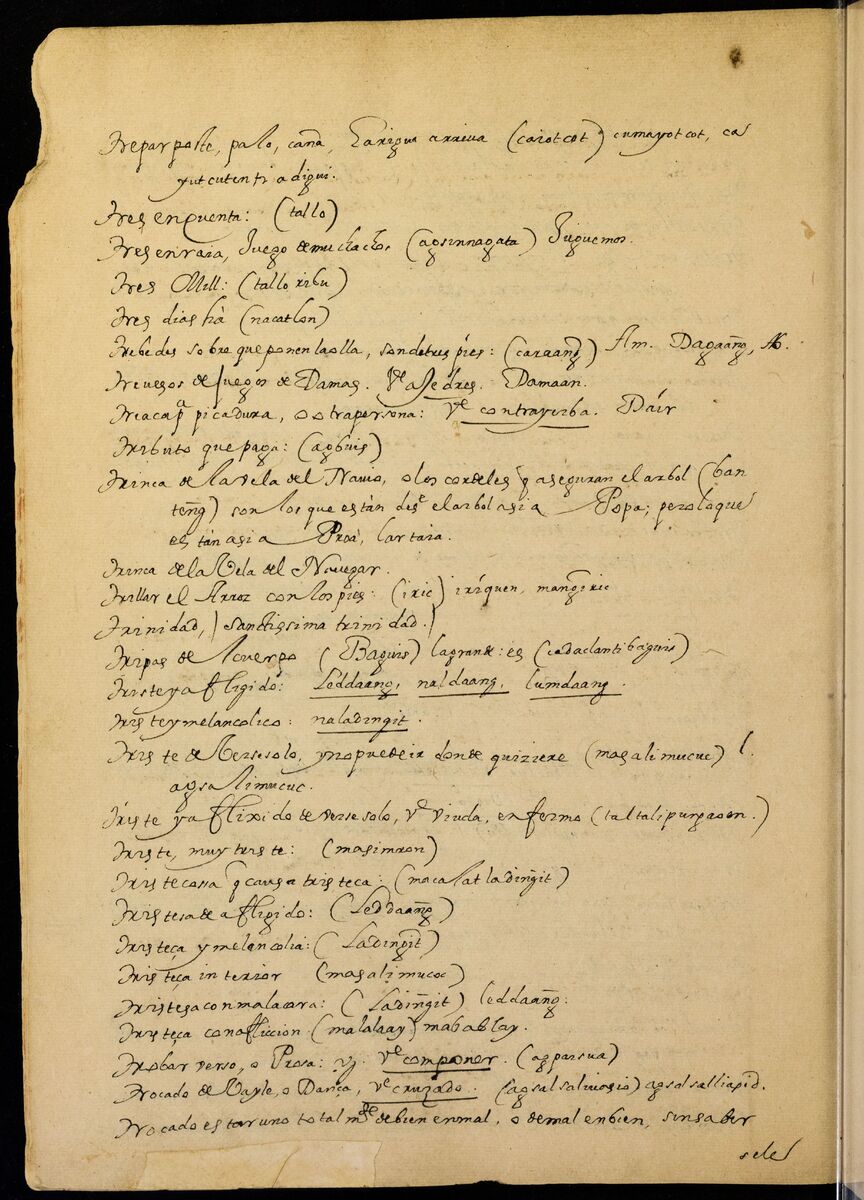 Trepar poste, palo, caña, Earigua arriua (caiotcot) cumayotcot, ca
yutcutenti adigui.
Tres enquenta: (tallo)
Tres en raia, Juego de muchachos, (agsinnagata) Juguemos.
Tres Mill: (tallo ribu)
Tres dias hà (nacatlon)
Trebedes sobre que ponen la olla, son de tres pies: (caraang̃) Am. Dagaang̃, Ab.
Trevesos de Juegos de Damas. Vᵉ alJedres. Damaan.
Triaca pᵃ picadura, o otra persona: Vᵉ contrayerba. Dáir
Tributo que paga: (agbuis)
Trinca de la vela del Nauio, o los cordeles q̃ aseguran el arbol (ban
teng̃) son los que están desᵉ el arbol asia Popa; pero lo que
están asia Proa, lartaia.
Trinca de la Vela del Nauegar.
Trillar el Arroz con los pies: (iric) iríquen, mang̃iric
Trinidad, Sanctissima trinidad.
Tripas del cuerpo (Baguis) la grande: es (cadaclanti baguis)
Triste y afligido: Leddaang, naldaang, lumdaang.
Triste y melancolico: naladingit.
Triste de Verse solo, y no puede ir donde quiziere (masalimucuc) l.
agsalimucuc.
Triste y aflixido de verse solo, Vᵉ viuda, enfermo (taltalipurgaoon.)
Triste, muy triste: (masimron)
Triste cossa q̃ causa tristeca: (macalat ladingit)
Tristesa de afligido: (Leddaang̃)
Tristeça y melancolia: (Ladingit)
Tristeça interior (masalimucoc)
Tristesa con mala cara: (Lading̃it) leddaang̃.
Tristeça con afliccion (malalaay) mabablay.
Trobar verso, o Prosa: Vᵉ componer. (agparsua)
Trocado de Bayle, o Dança, Vᵉ cruzado. (agsalsaliuasio) agsalsalliapid.
Trocado estar uno totalmᵗᵉ de bien en mal, o de mal en bien, sin saber
sele